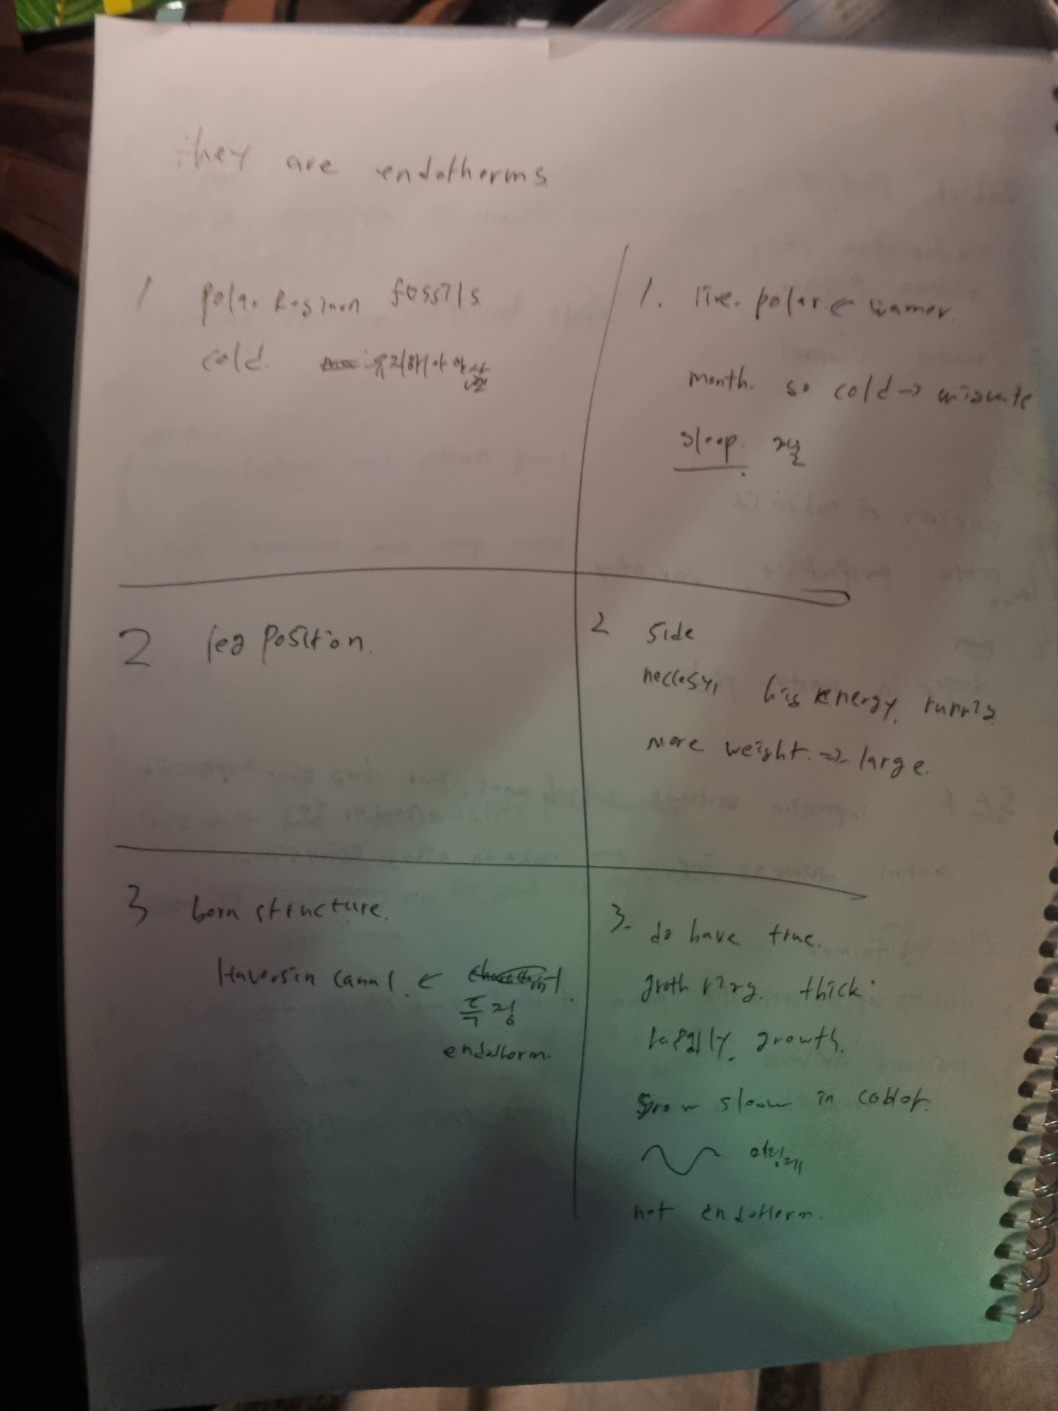 they are endotherms
1 polar Reginon fossils
cold. 유지해야
1. live. polar ← wamer.
month. so cold → migrate
sleep.
2 leg position.
2 side
neccesy, his energy. runnig
more weight. => large.
3 born structure.
Haversin canal. ←
특징
endotherm.
3. do have true.
groth ring. thick
growth.
grow sloow in
not endotherm.